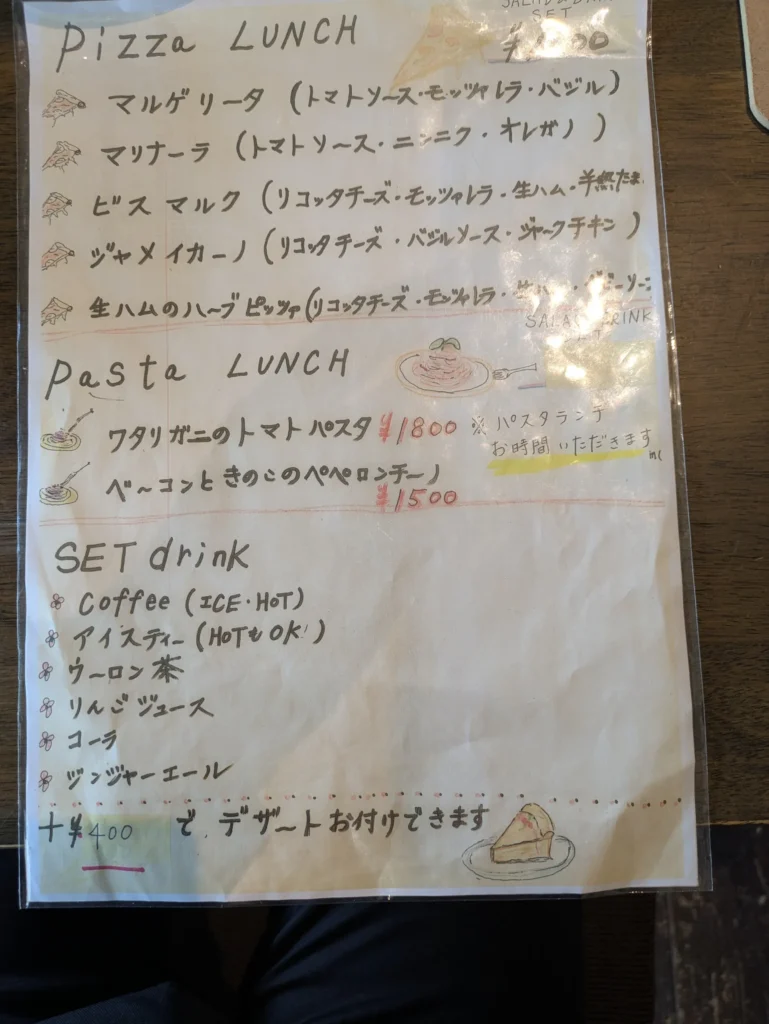 Pizza LUNCH
SALAD & DRINK
SET
マルゲリータ (トマトソース・モッツァレラ・バジル)
マリナーラ (トマトソース・ニンニク・オレガノ)
ビスマルク (リコッタチーズ・モッツァレラ・生ハム・半熟たま
ジャメイカーノ (リコッタチーズ・バジルソース・ジャークチキン)
生ハムのハーブピッツァ (リコッタチーズ・モッツァレラ・生ハム・
SALAD DRINK
Pasta LUNCH
ワタリガニのトマトパスタ ¥1800
※パスタランチ
お時間いただきます
ベーコンときのこのペペロンチーノ
¥1500
SET drink
Coffee (ICE・HOT)
アイスティー (HOTもOK!)
ウーロン茶
りんごジュース
コーラ
ジンジャーエール
+¥400 で デザートお付けできます